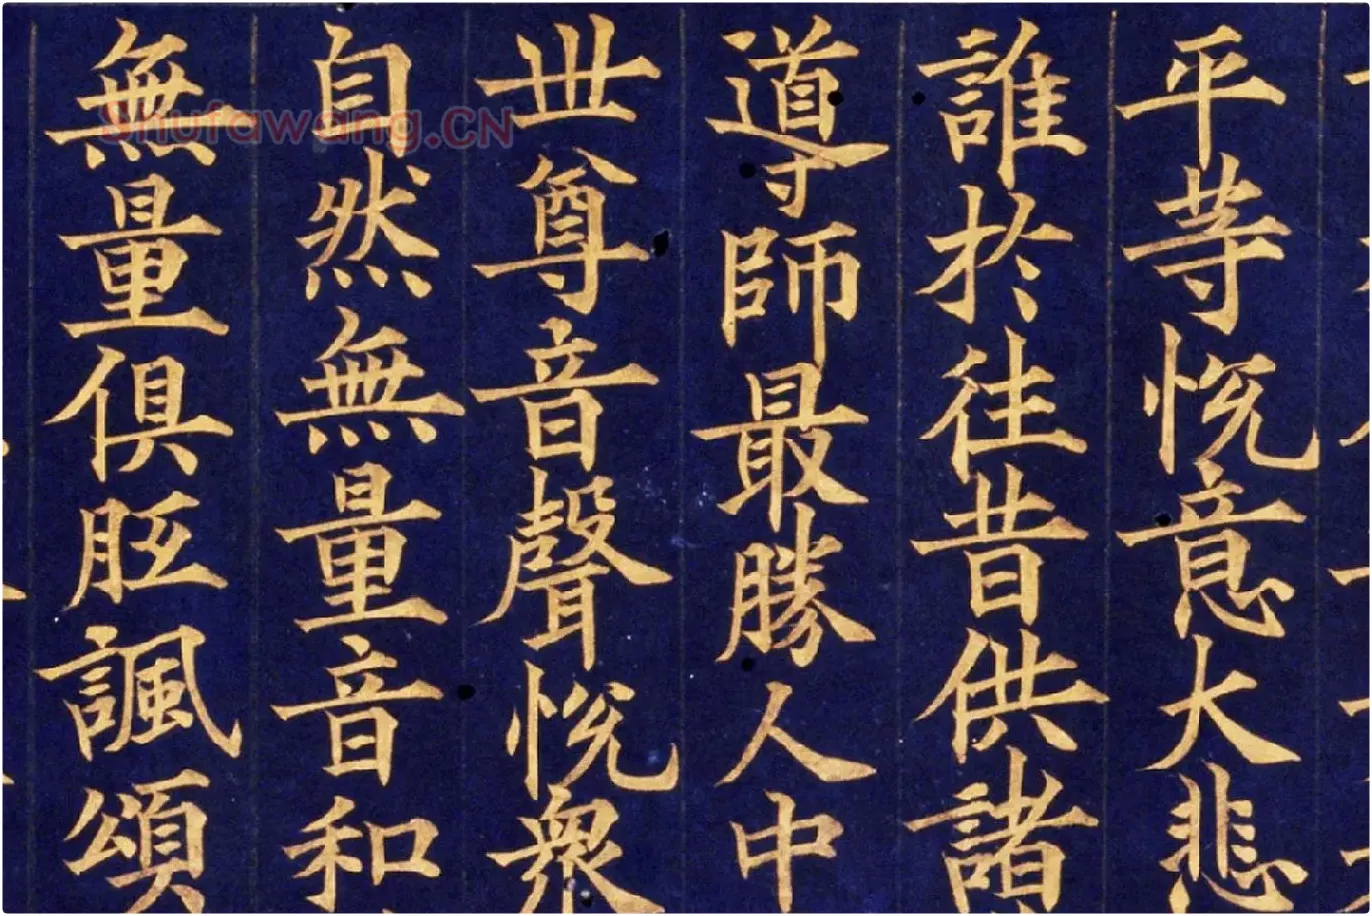 平等悅意大悲
誰於往昔供諸
導師最勝人中
世尊音聲悅衆
自然無量音和
無量俱胝諷頌
Shufawang.CN